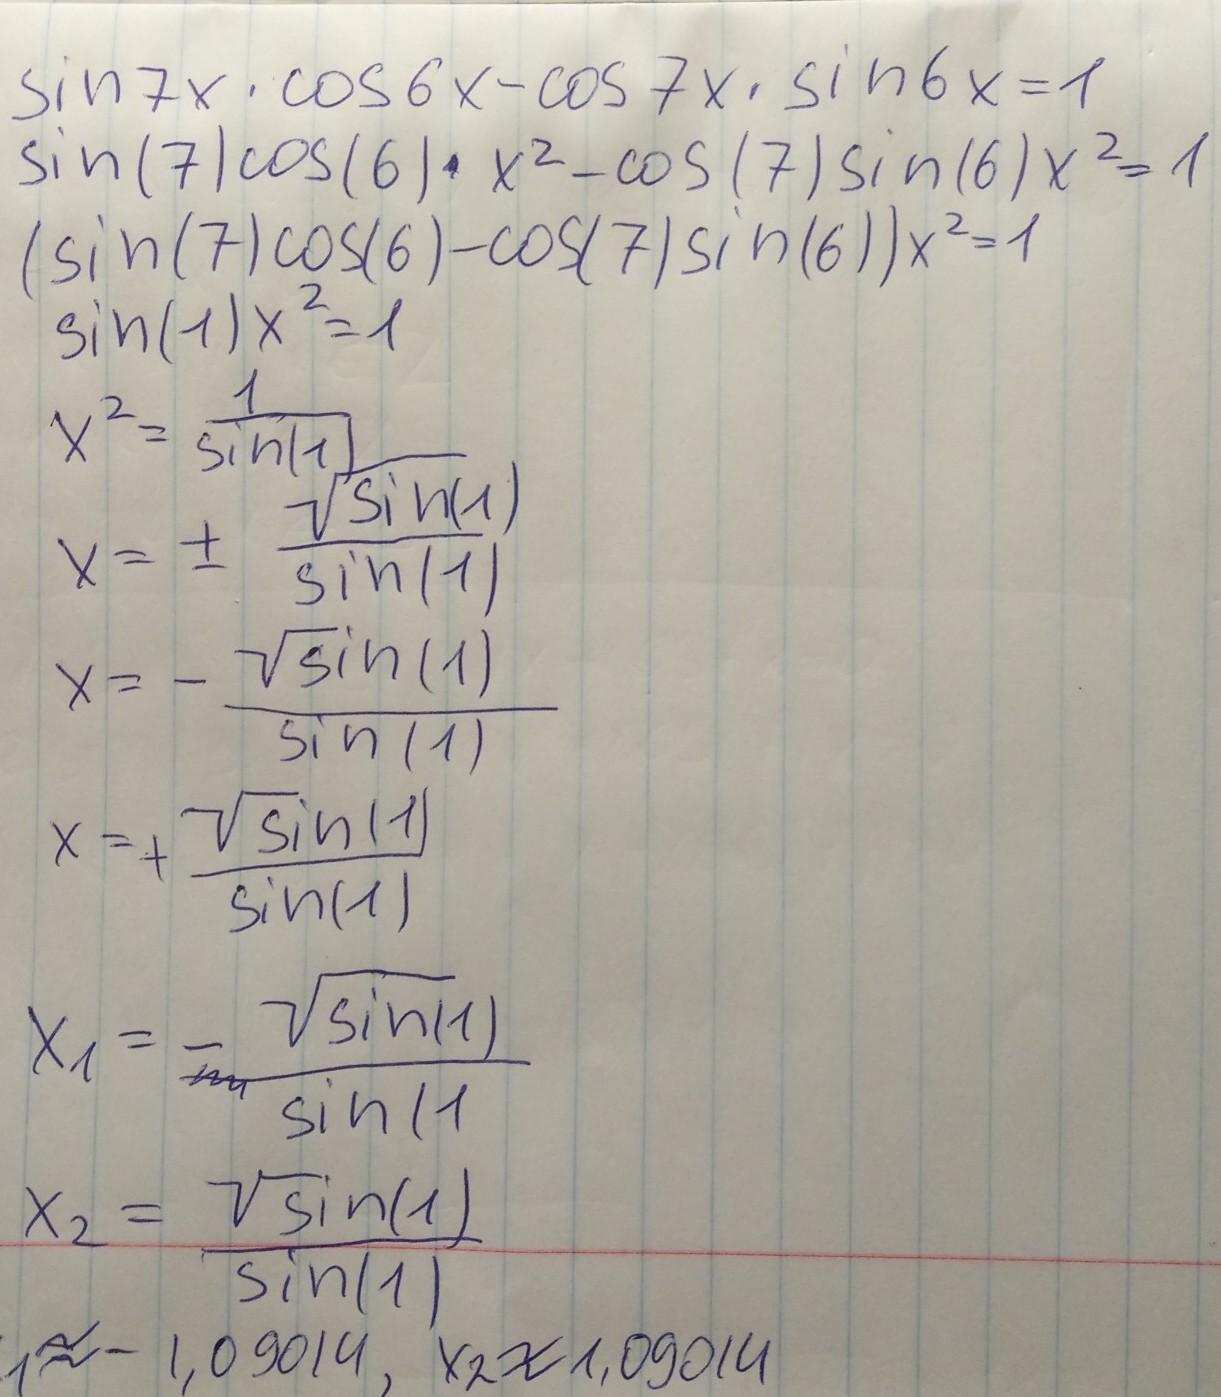 sin7x · cos6x-cos7x · sin6x=1
sin(7)cos(6) · x²-cos(7)sin(6)x²=1
(sin(7)cos(6)-cos(7)sin(6))x²=1
sin(1)x²=1
x²= 1/sin(1)
x= ± √sin(1)/sin(1)
x= - √sin(1)/sin(1)
x=+ √sin(1)/sin(1)
x₁= - √sin(1)/sin(1
x₂= √sin(1)/sin(1)
₁≈-1,09014, x₂≈1,09014